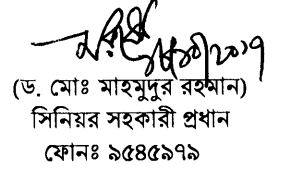 (ড. মোঃ মাহমুদুর রহমান)
সিনিয়র সহকারী প্রধান
ফোনঃ ৯৫৪৫৯৭৯